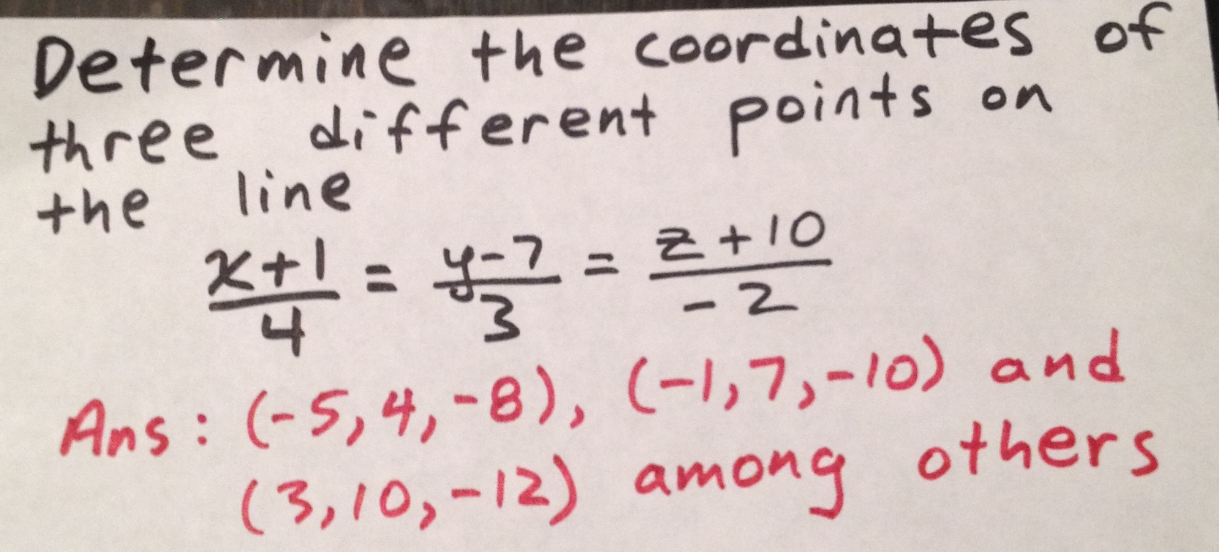 Determine the coordinates of
three different points on
the line
x+1/4 = y-7/3 = z+10/-2
Ans: (-5,4,-8), (-1,7,-10) and
(3,10,-12) among others